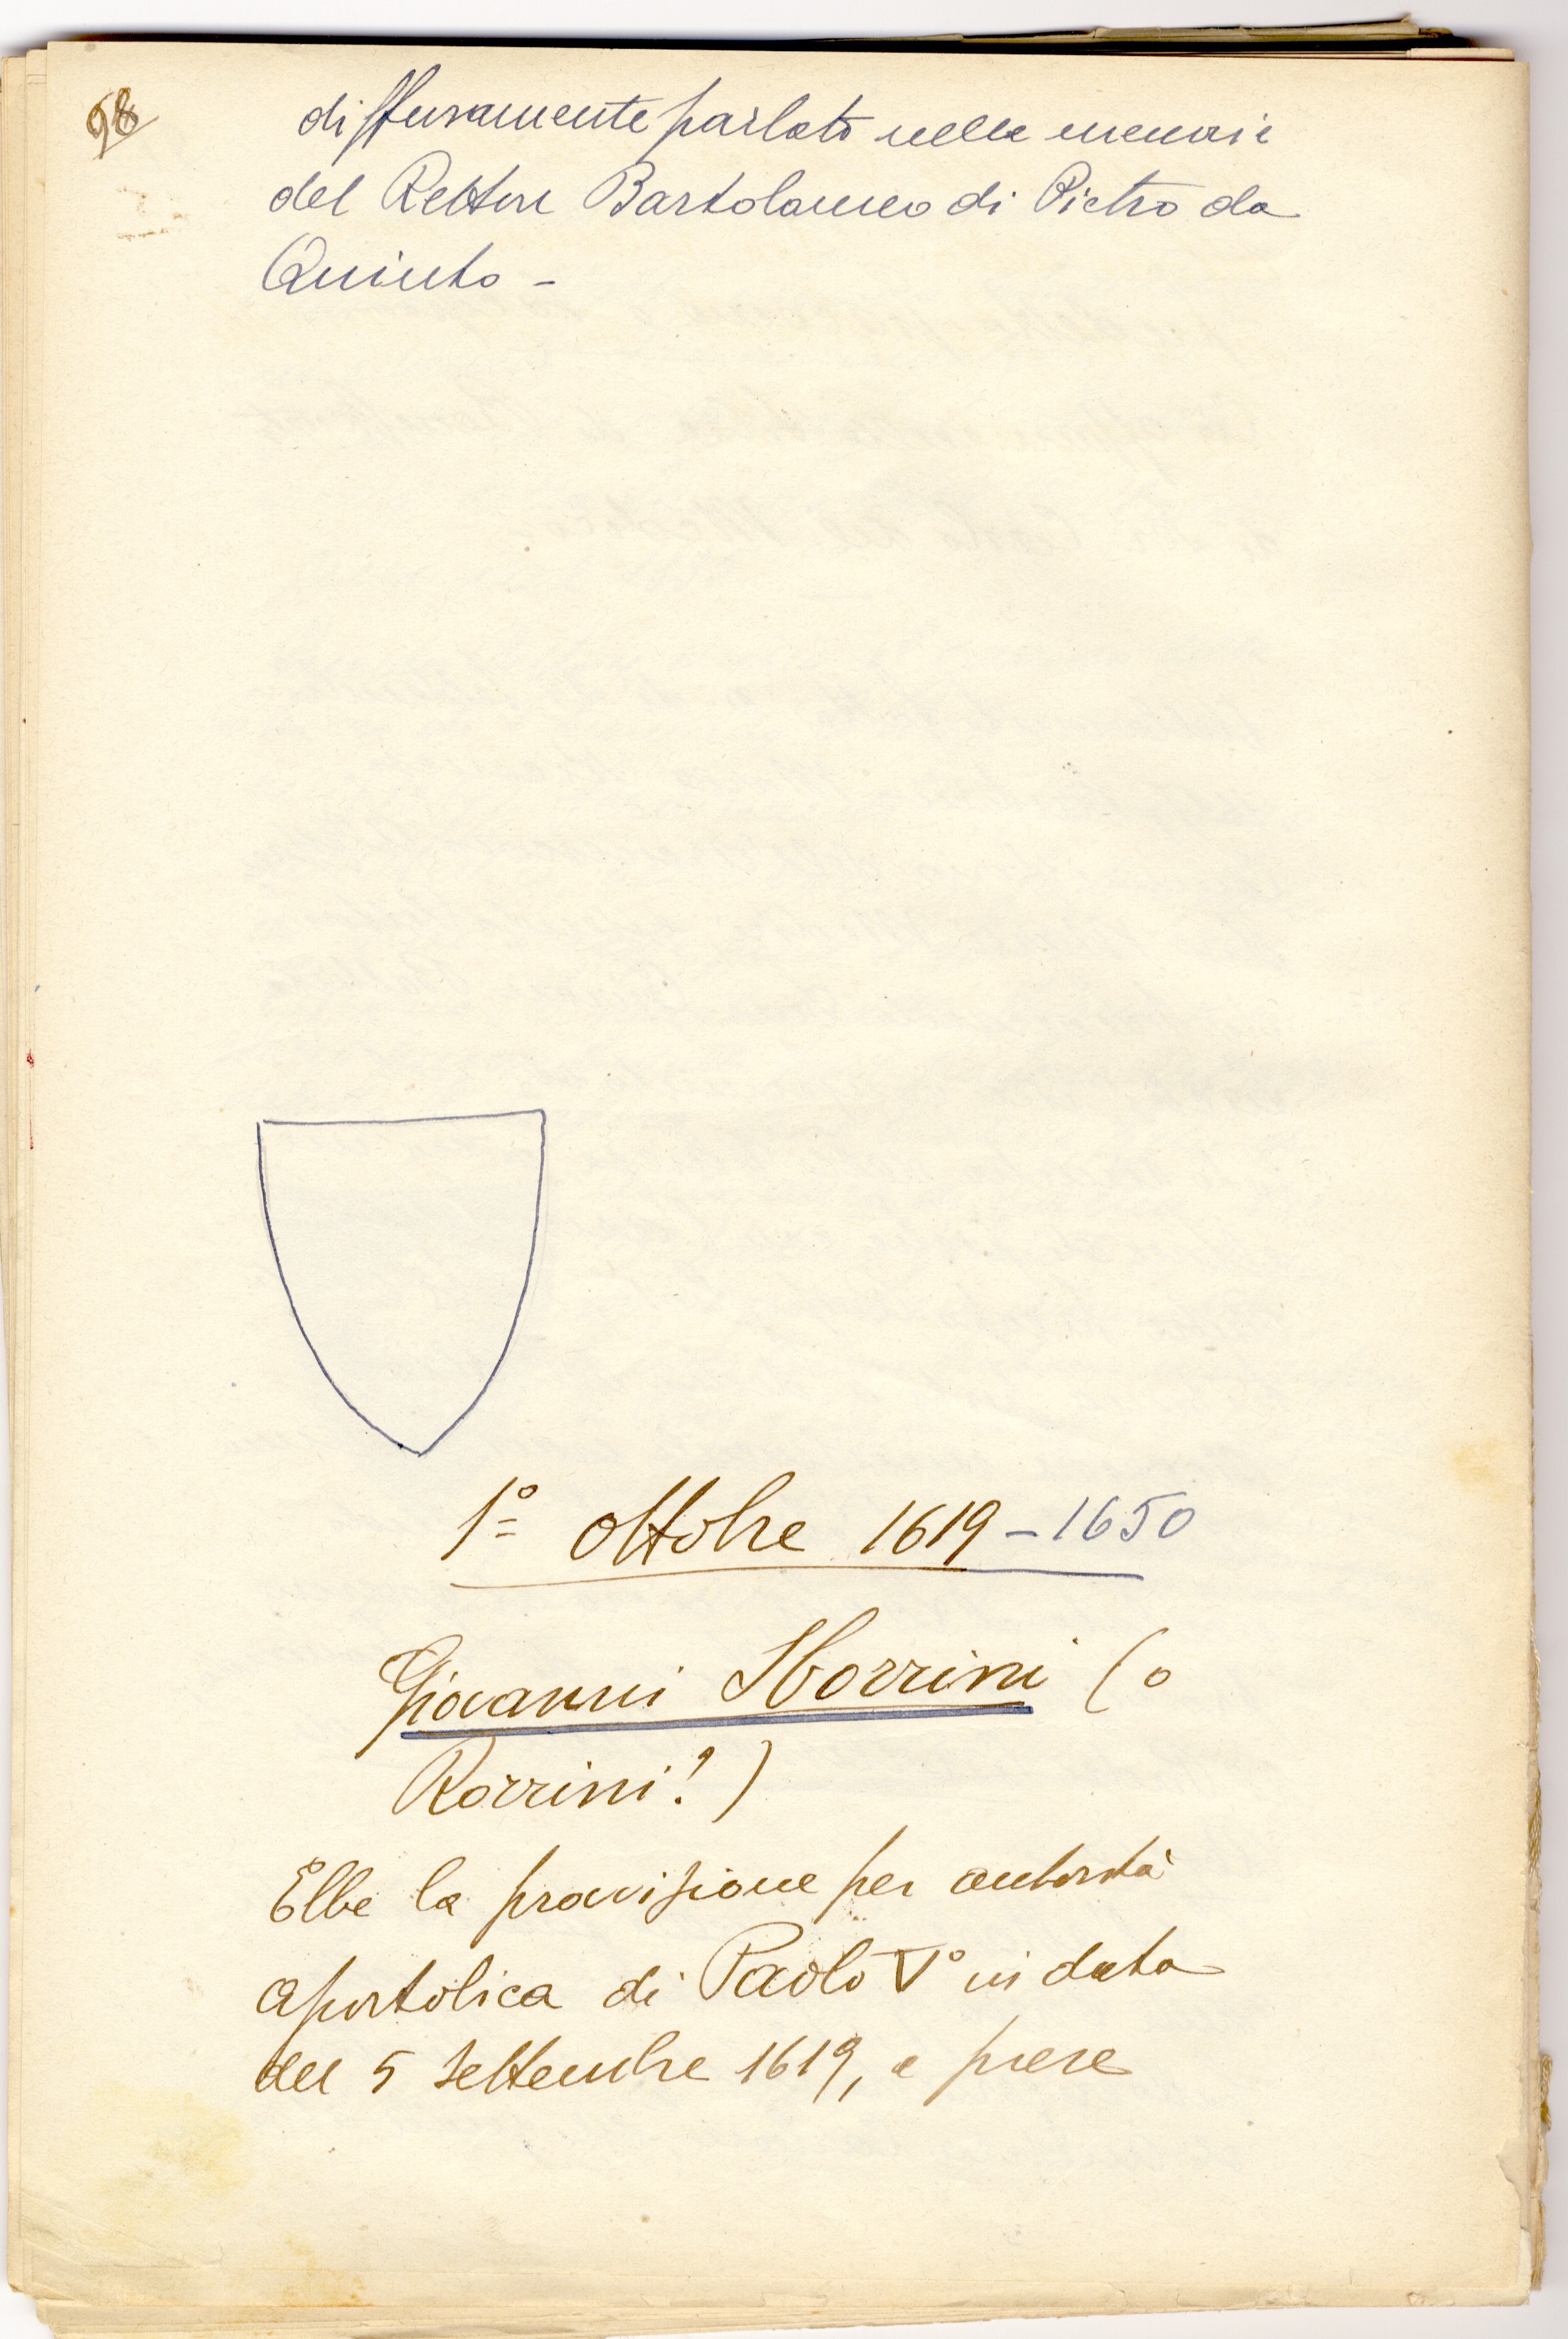 98
diffusamente parlato nelle memorie
del Rettore Bartolomeo di Pietro da
Quinto -
1° Ottobre 1619 - 1650
Giovanni Sborrini (o
Rorrini! )
Ebbe la provisione per autorità
apostolica di Paolo V° in data
del 5 Settembre 1619, e prese